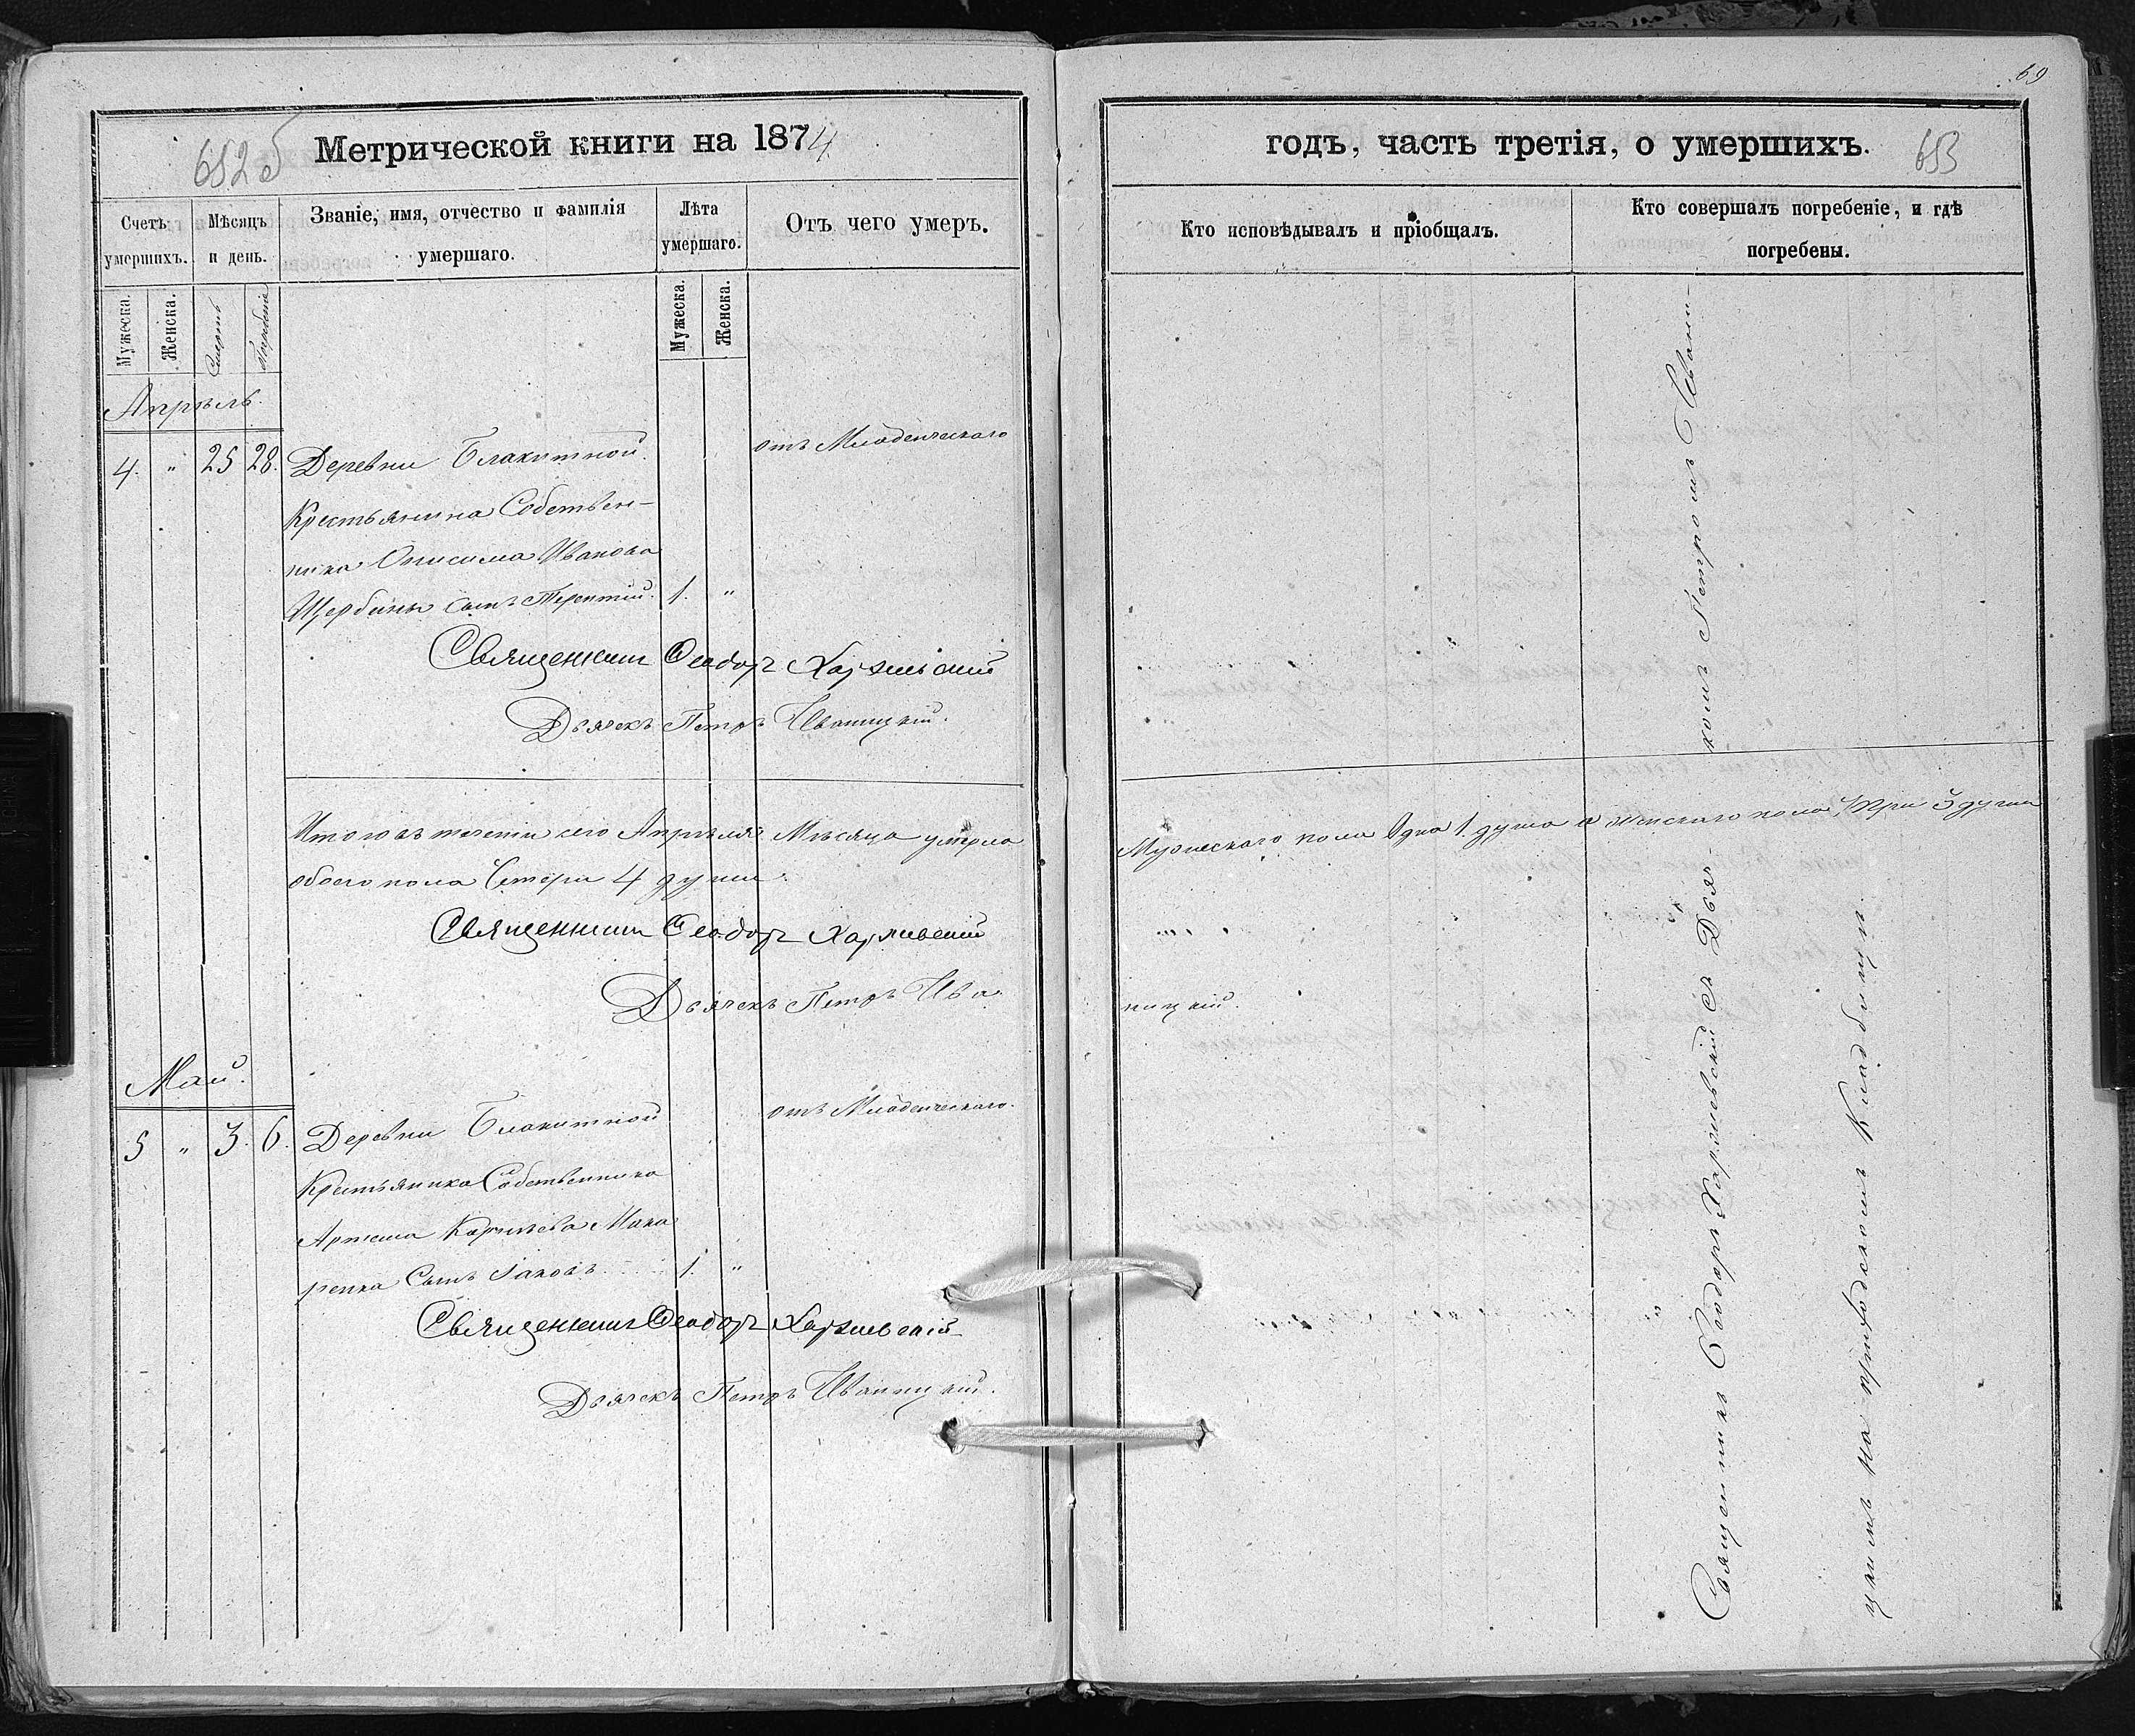 652 б
Метрической книги на 1874
Счетъ умершихъ.
Мѣсяцъ и день.
Званіе, имя, отчество и фамилія умершаго.
Лѣта умершаго.
Отъ чего умеръ.
Мужеска.
Женска.
Смерть
Погребенія
Мужеска.
Женска.
Апрѣль.
4. " 25 28. Деревни Блакитной отъ Младенческаго
Крестьянина Собствен-
ника Онисима Иванова
Щербины сынъ Терентій. 1. "
Священникъ Ѳеодоръ Харжевскій
Дьячекъ Петръ Иваницкій.
Итого въ теченіи сего Апрѣля Мѣсяца умерло
обоего пола Четыри 4 души.
Священникъ Ѳеодоръ Харжевскій
Дьячекъ Петръ Ива
Май.
5 " 3. 6. Деревни Блакитной отъ Младенческаго.
Крестьянина Собственника
Артема Корнѣева Мака
ренка Сынъ Іаковъ 1. "
Священникъ Ѳеодоръ Харжевскій
Дьячекъ Петръ Иваницкій.
69
годъ, часть третія, о умершихъ.
653
Кто исповѣдывалъ и пріобщалъ.
Кто совершалъ погребеніе, и гдѣ
погребены.
Мужескаго пола Одна 1 душа а женскаго пола Три 3 души
ницкій.
Священникъ Ѳеодоръ Харжевскій съ Дьяч-
комъ Петромъ Ивани-
цкимъ на приходскомъ Кладбищи.